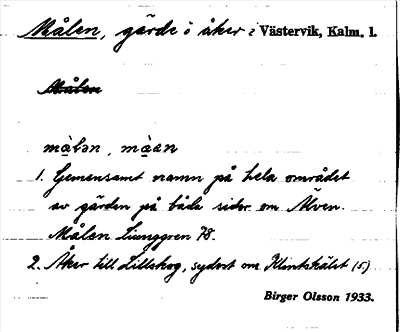 Målen, gärde i åker i Västervik, Kalm. l.
Målen
màlən, màən
1. Gemensamt namn på hela området
av gärden på båda sidor om Älven.
Målen Ljunggren 78.
2. Åker till Lillskog, sydost om Klintskälet (5)
Birger Olsson 1933.